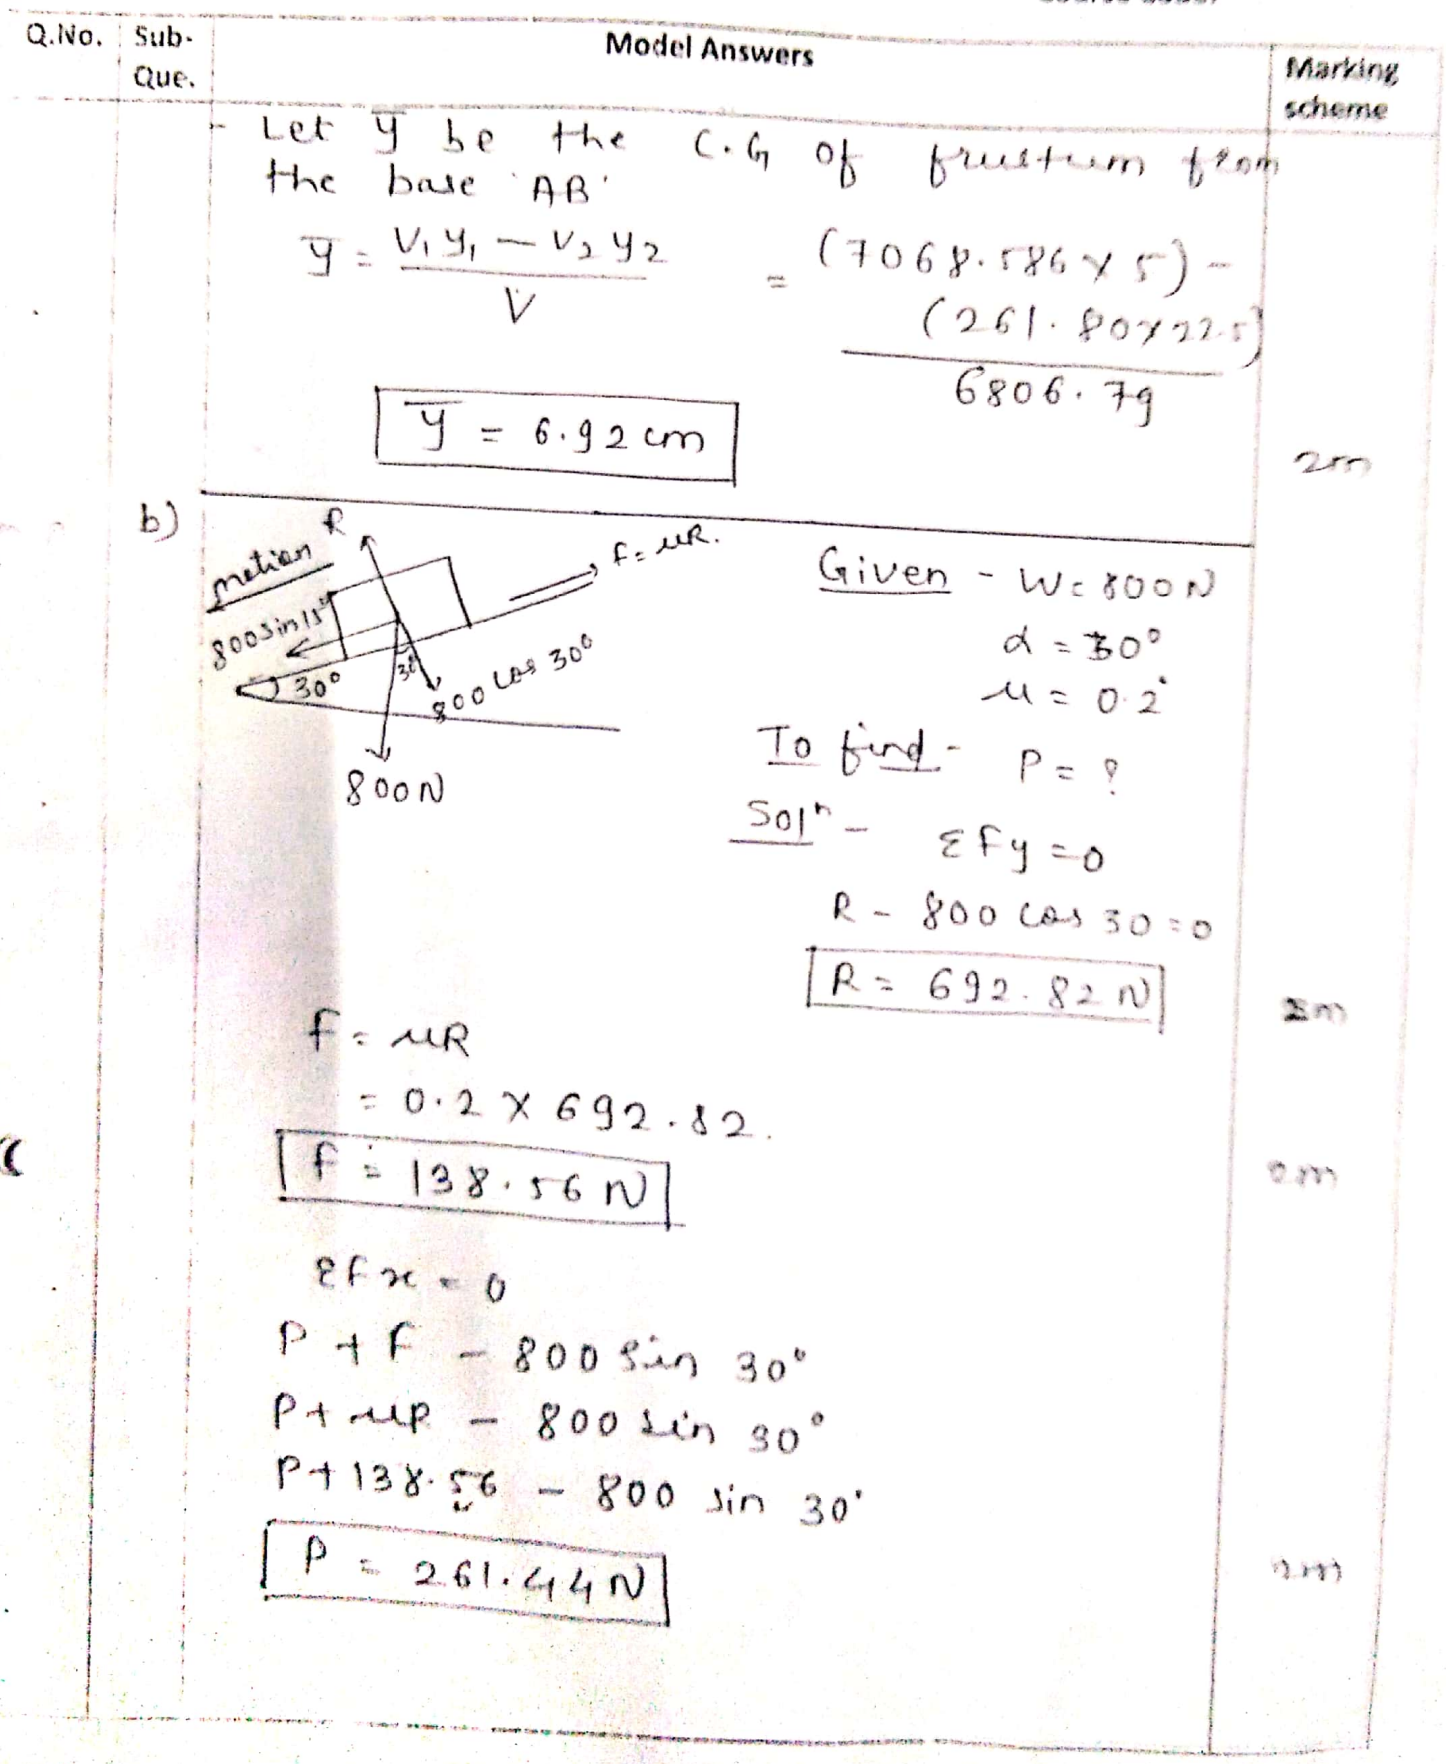 Q.No. Sub- Que. Model Answers Marking scheme
- Let ȳ be the C.G of frustum from
the base 'AB'
ȳ = V₁y₁ - V₂y₂ / V = (7068.586 × 5) - (261.80 × 22.5) / 6806.79
ȳ = 6.92 cm
2m
b)
motion
R
f = μR.
800 sin 15°
30°
30°
800 cos 30°
800N
Given - W = 800N
α = 30°
μ = 0.2
To find - P = ?
Solⁿ - Σfy = 0
R - 800 cos 30 = 0
R = 692.82 N
2m
f = μR
= 0.2 × 692.82.
f = 138.56 N
Σfx = 0
P + f - 800 sin 30°
P + μR - 800 sin 30°
P + 138.56 - 800 sin 30°
P = 261.44 N
2m